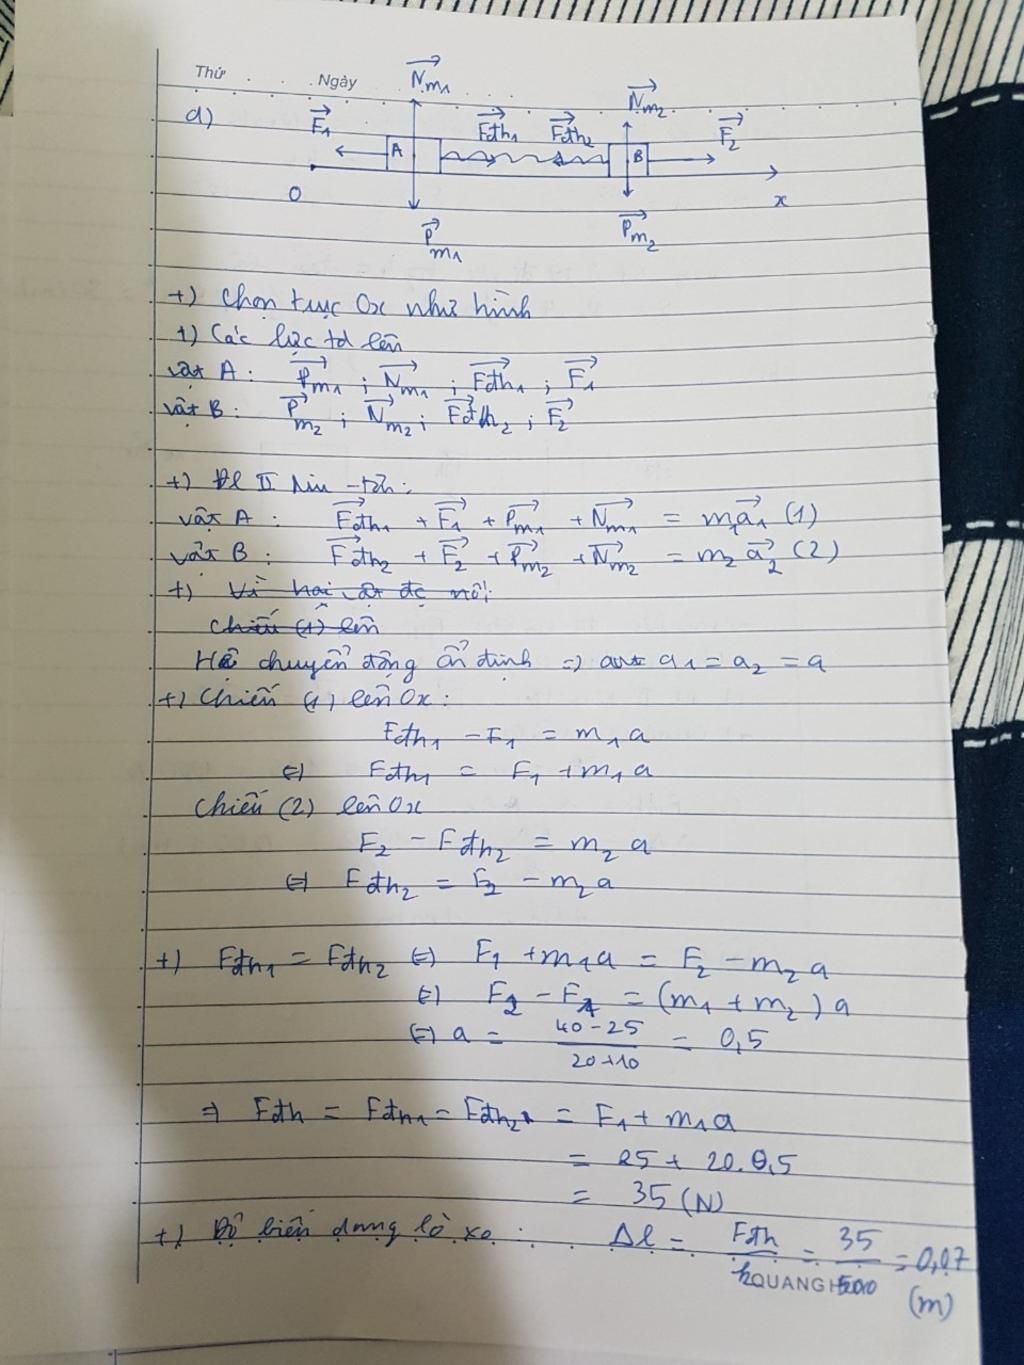 Thứ Ngày
a)
N⃗m₁
N⃗m₂
F⃗₁
F⃗đh₁ F⃗đh₂
F⃗₂
A B
O x
P⃗m₁
P⃗m₂
+) Chọn trục Ox như hình
+) Các lực td lên
vật A : P⃗m₁ ; N⃗m₁ ; F⃗đh₁ ; F⃗₁
vật B : P⃗m₂ ; N⃗m₂ ; F⃗đh₂ ; F⃗₂
+) Đl II Niu-tơn:
vật A : F⃗đh₁ + F⃗₁ + P⃗m₁ + N⃗m₁ = m₁a⃗₁ (1)
vật B : F⃗đh₂ + F⃗₂ + P⃗m₂ + N⃗m₂ = m₂a⃗₂ (2)
+) Vì hai vật đc nối
chiếu (1) lên
Hệ chuyển động ổn định ⇒ a₁ = a₂ = a
+) Chiếu (1) lên Ox :
Fđh₁ - F₁ = m₁a
⇔ Fđh₁ = F₁ + m₁a
Chiếu (2) lên Ox
F₂ - Fđh₂ = m₂a
⇔ Fđh₂ = F₂ - m₂a
+) Fđh₁ = Fđh₂ ⇔ F₁ + m₁a = F₂ - m₂a
⇔ F₂ - F₁ = (m₁ + m₂)a
⇔ a = (40-25)/(20+10) = 0,5
⇒ Fđh = Fđh₁ = Fđh₂ = F₁ + m₁a
= 25 + 20.0,5
= 35 (N)
+) Độ biến dạng lò xo : Δl = Fđh/k = 35/500 = 0,07
(m)